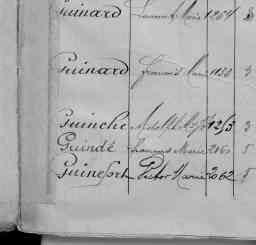 Guinard Laurent Marie 1264 3
Guinard François Marie 1150 3
Guinche Adolphe 1253 3
Guindé François Marie 2060 5
Guinefort Victor Marie 2062 5